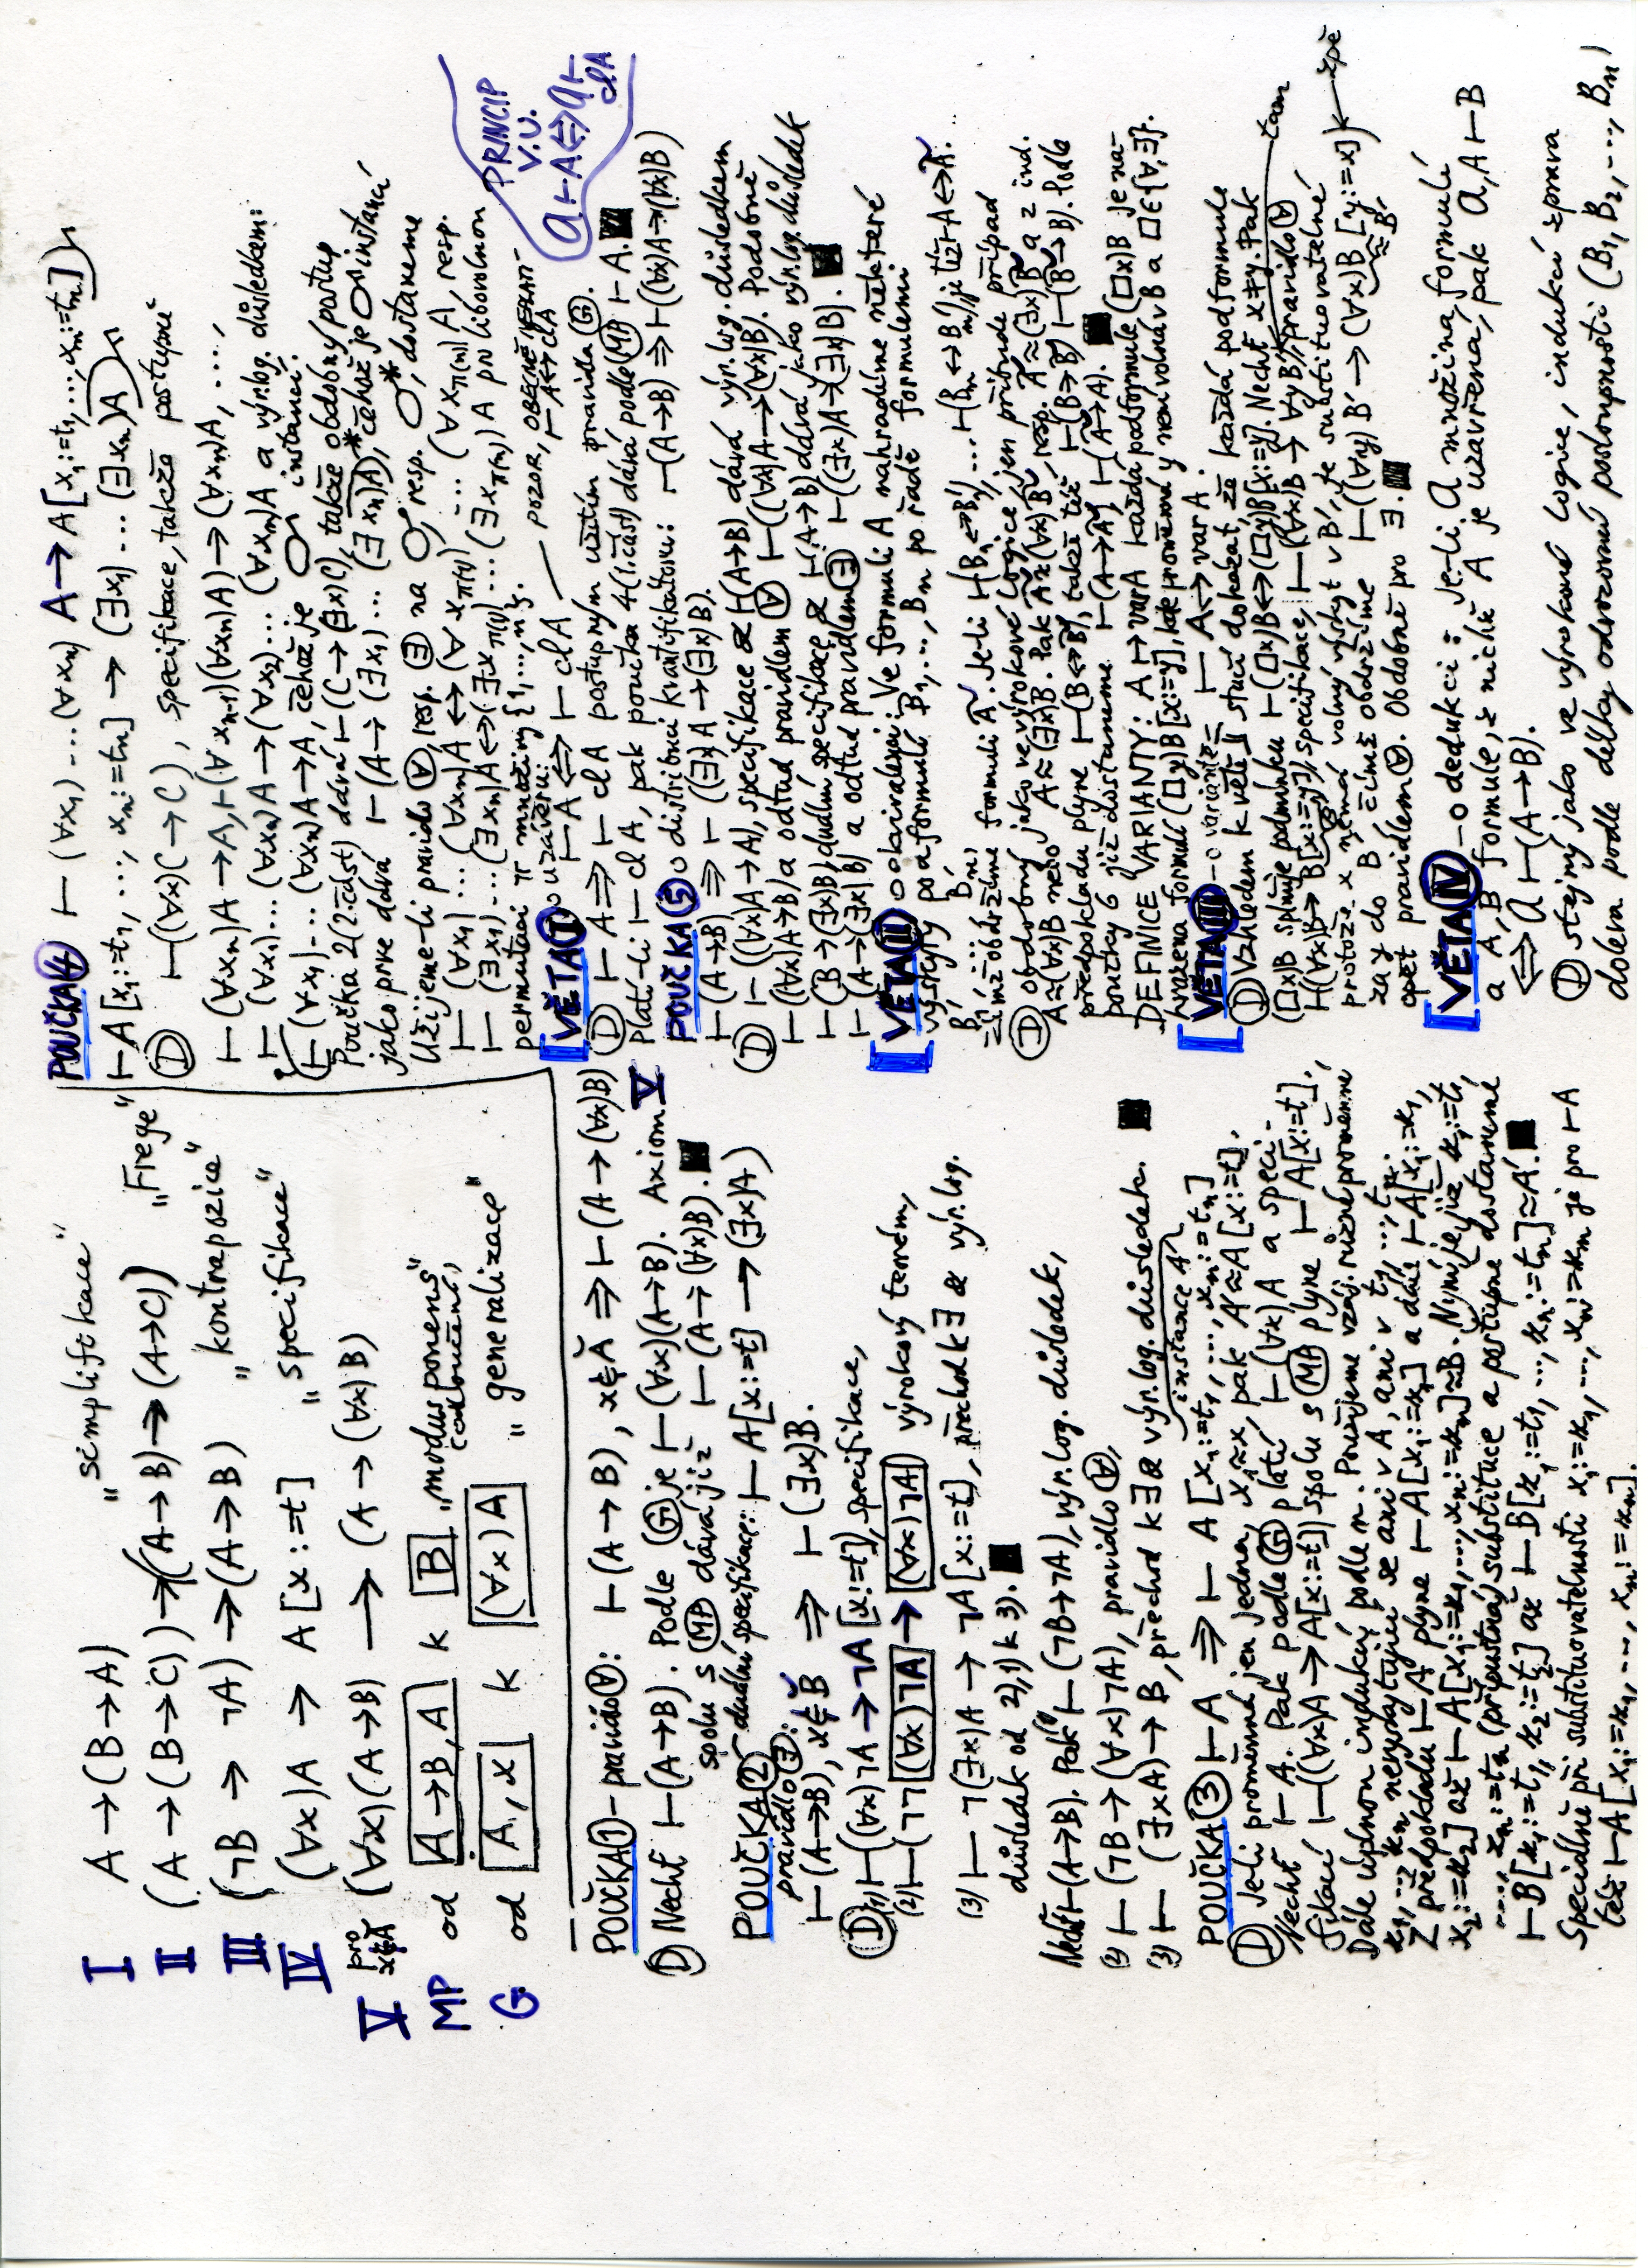 I A → (B → A) "simplifikace"
II (A → (B → C)) → ((A → B) → (A → C)) "Frege"
III (¬B → ¬A) → (A → B) "kontrapozice"
IV (∀x)A → A[x:=t] "specifikace"
V pro (∀x)(A → B) → (A → (∀x)B)
MP od A → B, A k B "modus ponens"
(odloučení)
G od A, x k (∀x)A "generalizace"
POUČKA 1 – pravidlo ∀: ⊢(A → B), x∉A ⇒ ⊢(A → (∀x)B)
D Nechť ⊢(A → B). Podle G je ⊢(∀x)(A → B). Axiom V
spolu s MP dává již ⊢(A → (∀x)B). ■
POUČKA 2 duální specifikace: ⊢ A[x:=t] → (∃x)A
pravidlo ∃:
⊢(A→B), x∉B ⇒ ⊢(∃x)B.
D (1) ⊢((∀x)¬A → ¬A[x:=t]), specifikace,
(2) ⊢(¬¬(∀x)¬A → (∀x)¬A) výrokový teorém,
(3) ⊢ ¬(∃x)A → ¬A[x:=t], přechod k ∃ & výr. log.
důsledek od 2), 1) k 3). ■
Nechť ⊢(A→B). Pak ⊢(¬B→¬A), výr. log. důsledek,
(2) ⊢ (¬B → (∀x)¬A), pravidlo ∀,
(3) ⊢ (∃xA) → B, přechod k ∃ & výr. log. důsledek. ■
instance A
POUČKA 3 ⊢ A ⇒ ⊢ A[x₁:=t₁, ..., xₙ:=tₙ]
D Je-li proměnná jen jedna, x₁≈x, pak A'≈A[x:=t].
Nechť ⊢ A. Pak podle G platí ⊢(∀x)A a speci-
fikací ⊢((∀x)A → A[x:=t]) spolu s MP plyne ⊢ A[x:=t].
Dále úplnou indukcí podle n. Použijeme vzáj. různé proměnné
z₁, ..., zₙ nevyskytující se ani v A, ani v t₁, ..., tₙ.
Z předpokladu ⊢A plyne ⊢A[x₁:=z₁] a dále ⊢A[x₁:=z₁,
x₂:=z₂] až ⊢A[x₁:=z₁, ..., xₙ:=zₙ]≈B. Nyní je již z₁:=t₁,
..., zₙ:=tₙ (přípustná) substituce a postupně dostaneme
⊢B[z₁:=t₁, z₂:=t₂] až ⊢B[z₁:=t₁, ..., zₙ:=tₙ]≈A'. ■
Speciálně při substituovatelnosti x₁:=z₁, ..., xₙ:=zₙ je pro ⊢A
též ⊢A[x₁:=z₁, ..., xₙ:=zₙ].
POUČKA 4 ⊢ (∀x₁)...(∀xₙ) A → A[x₁:=t₁, ..., xₙ:=tₙ]
⊢A[x₁:=t₁, ..., xₙ:=tₙ] → (∃x₁)...(∃xₙ)A
D ⊢((∀x)C → C), specifikace, takže postupně
⊢(∀xₙ)A → A, ⊢(∀xₙ₋₁)(∀xₙ)A → (∀xₙ)A, ...,
⊢ (∀x₁)...(∀xₙ)A → (∀x₂)...(∀xₙ)A a výr. log. důsledkem:
⊢(∀x₁)...(∀xₙ)A → A, čehož je instancí.
Poučka 2 (2. část) dává ⊢(C → (∃x)C), takže obdobný postup
jako prve dává ⊢(A → (∃x₁)...(∃xₙ)A)*, čehož je instancí
Užijeme-li pravidlo ∀, resp. ∃ na, resp. *, dostaneme
⊢(∀x₁)...(∀xₙ)A ↔ (∀x_π(1))...(∀x_π(n))A, resp.
⊢(∃x₁)...(∃xₙ)A ↔ (∃x_π(1))...(∃x_π(n))A pro libovolnou
permutaci π množiny {1, ..., n}.
VĚTA I o uzávěru: ⊢A ⇔ ⊢clA — POZOR, OBECNĚ NEPLATÍ
⊢A↔clA
PRINCIP
V.U.
𝒜⊢A⇔𝒜⊢
clA
D ⊢A ⇒ ⊢clA postupným užitím pravidla G.
Platí-li ⊢clA, pak poučka 4 (1. část) dává podle MP ⊢A. ■
POUČKA 5 o distribuci kvantifikátorů: ⊢(A→B) ⇒ ⊢((∀x)A→(∀x)B)
⊢(A→B) ⇒ ⊢((∃x)A → (∃x)B).
D ⊢((∀x)A → A), specifikace & ⊢(A→B) dává výr. log. důsledkem
⊢((∀x)A → B) a odtud pravidlem ∀ ⊢((∀x)A → (∀x)B). Podobně
⊢(B → (∃x)B) duální specifikace & ⊢(A→B) dává jako výr. log. důsledek
⊢(A → (∃x)B) a odtud pravidlem ∃ ⊢((∃x)A → (∃x)B). ■
VĚTA II o ekvivalenci: Ve formuli A nahradíme některé
výskyty podformulí B₁, ..., Bₙ po řadě formulemi
B₁', ..., Bₙ', čímž obdržíme formuli A'. Je-li ⊢(B₁↔B₁'), ..., ⊢(Bₙ↔Bₙ'), je též ⊢A↔A'.
D obdobný jako ve výrokové logice, jen přibude případ
A≈(∀x)B nebo A≈(∃x)B. Pak A'≈(∀x)B', resp. A'≈(∃x)B' a z ind.
předpokladu plyne ⊢(B↔B'), takže též ⊢(B→B'), ⊢(B'→B). Podle
poučky 6 již dostaneme ⊢(A→A'), ⊢(A'→A). ■
DEFINICE VARIANTY: A ↦ varA každá podformule (□x)B je na-
hrazena formulí (□y)B[x:=y], kde proměnná y není volná v B a □∈{∀,∃}.
VĚTA III – o variantě – ⊢ A↔varA.
D Vzhledem k větě II stačí dokázat, že každá podformule
(□x)B splňuje podmínku ⊢(□x)B↔(□y)B[x:=y]. Nechť x≠y. Pak
⊢((∀x)B → B[x:=y]), specifikace, ⊢(∀x)B → ∀yB', pravidlo ∀ — tam
protože x nemá volný výskyt v B', je substituovatelné
za y do B', čímž obdržíme ⊢((∀y)B' → (∀x)B'[y:=x]) ← zpě
≈B
opět pravidlem ∀. Obdobně pro ∃. ■
VĚTA IV – o dedukci: Je-li 𝒜 množina formulí
a A, B formule, z nichž A je uzavřená, pak 𝒜, A ⊢ B
⇔ 𝒜 ⊢ (A → B).
D stejný jako ve výrokové logice, indukcí zprava
doleva podle délky odvození posloupnosti (B₁, B₂, ..., Bₙ)